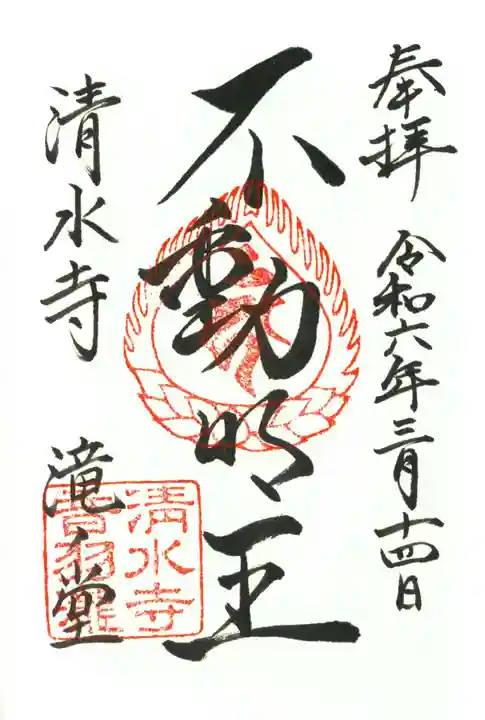 奉拝
令和六年三月十四日
不動明王
清水寺
滝之堂
清水寺
音羽瀧